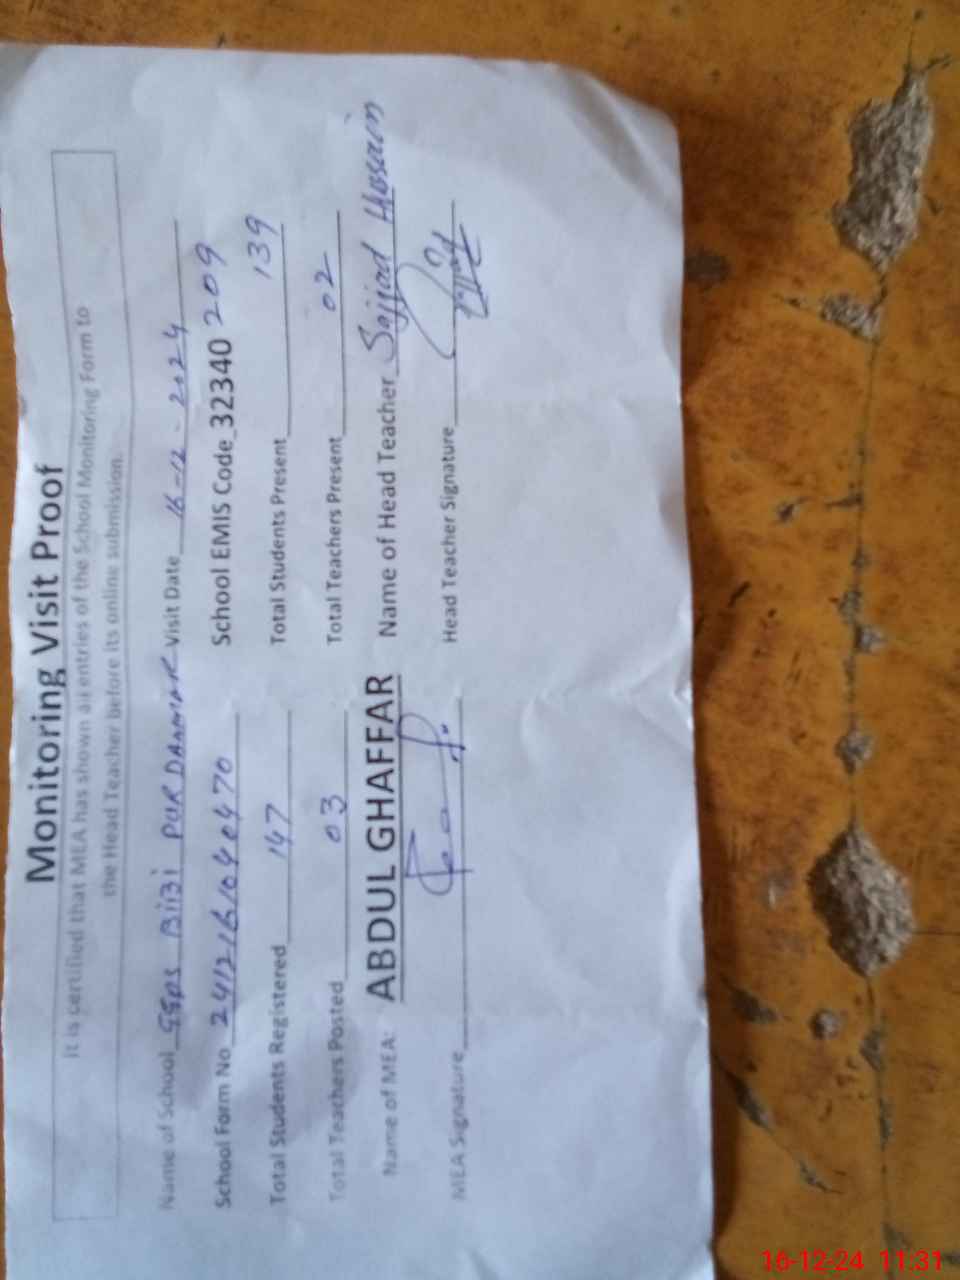 Monitoring Visit Proof
It is certified that MEA has shown all entries of the School Monitoring Form to
the Head Teacher before its online submission.
Name of School GGPS BIBI PUR DAMMAR Visit Date 16-12-2024
School Form No 2412161040470 School EMIS Code 32340 209
Total Students Registered 147 Total Students Present 139
Total Teachers Posted 03 Total Teachers Present 02
Name of MEA: ABDUL GHAFFAR Name of Head Teacher Sajjad Hussain
MEA Signature Head Teacher Signature
16-12-24 11:31